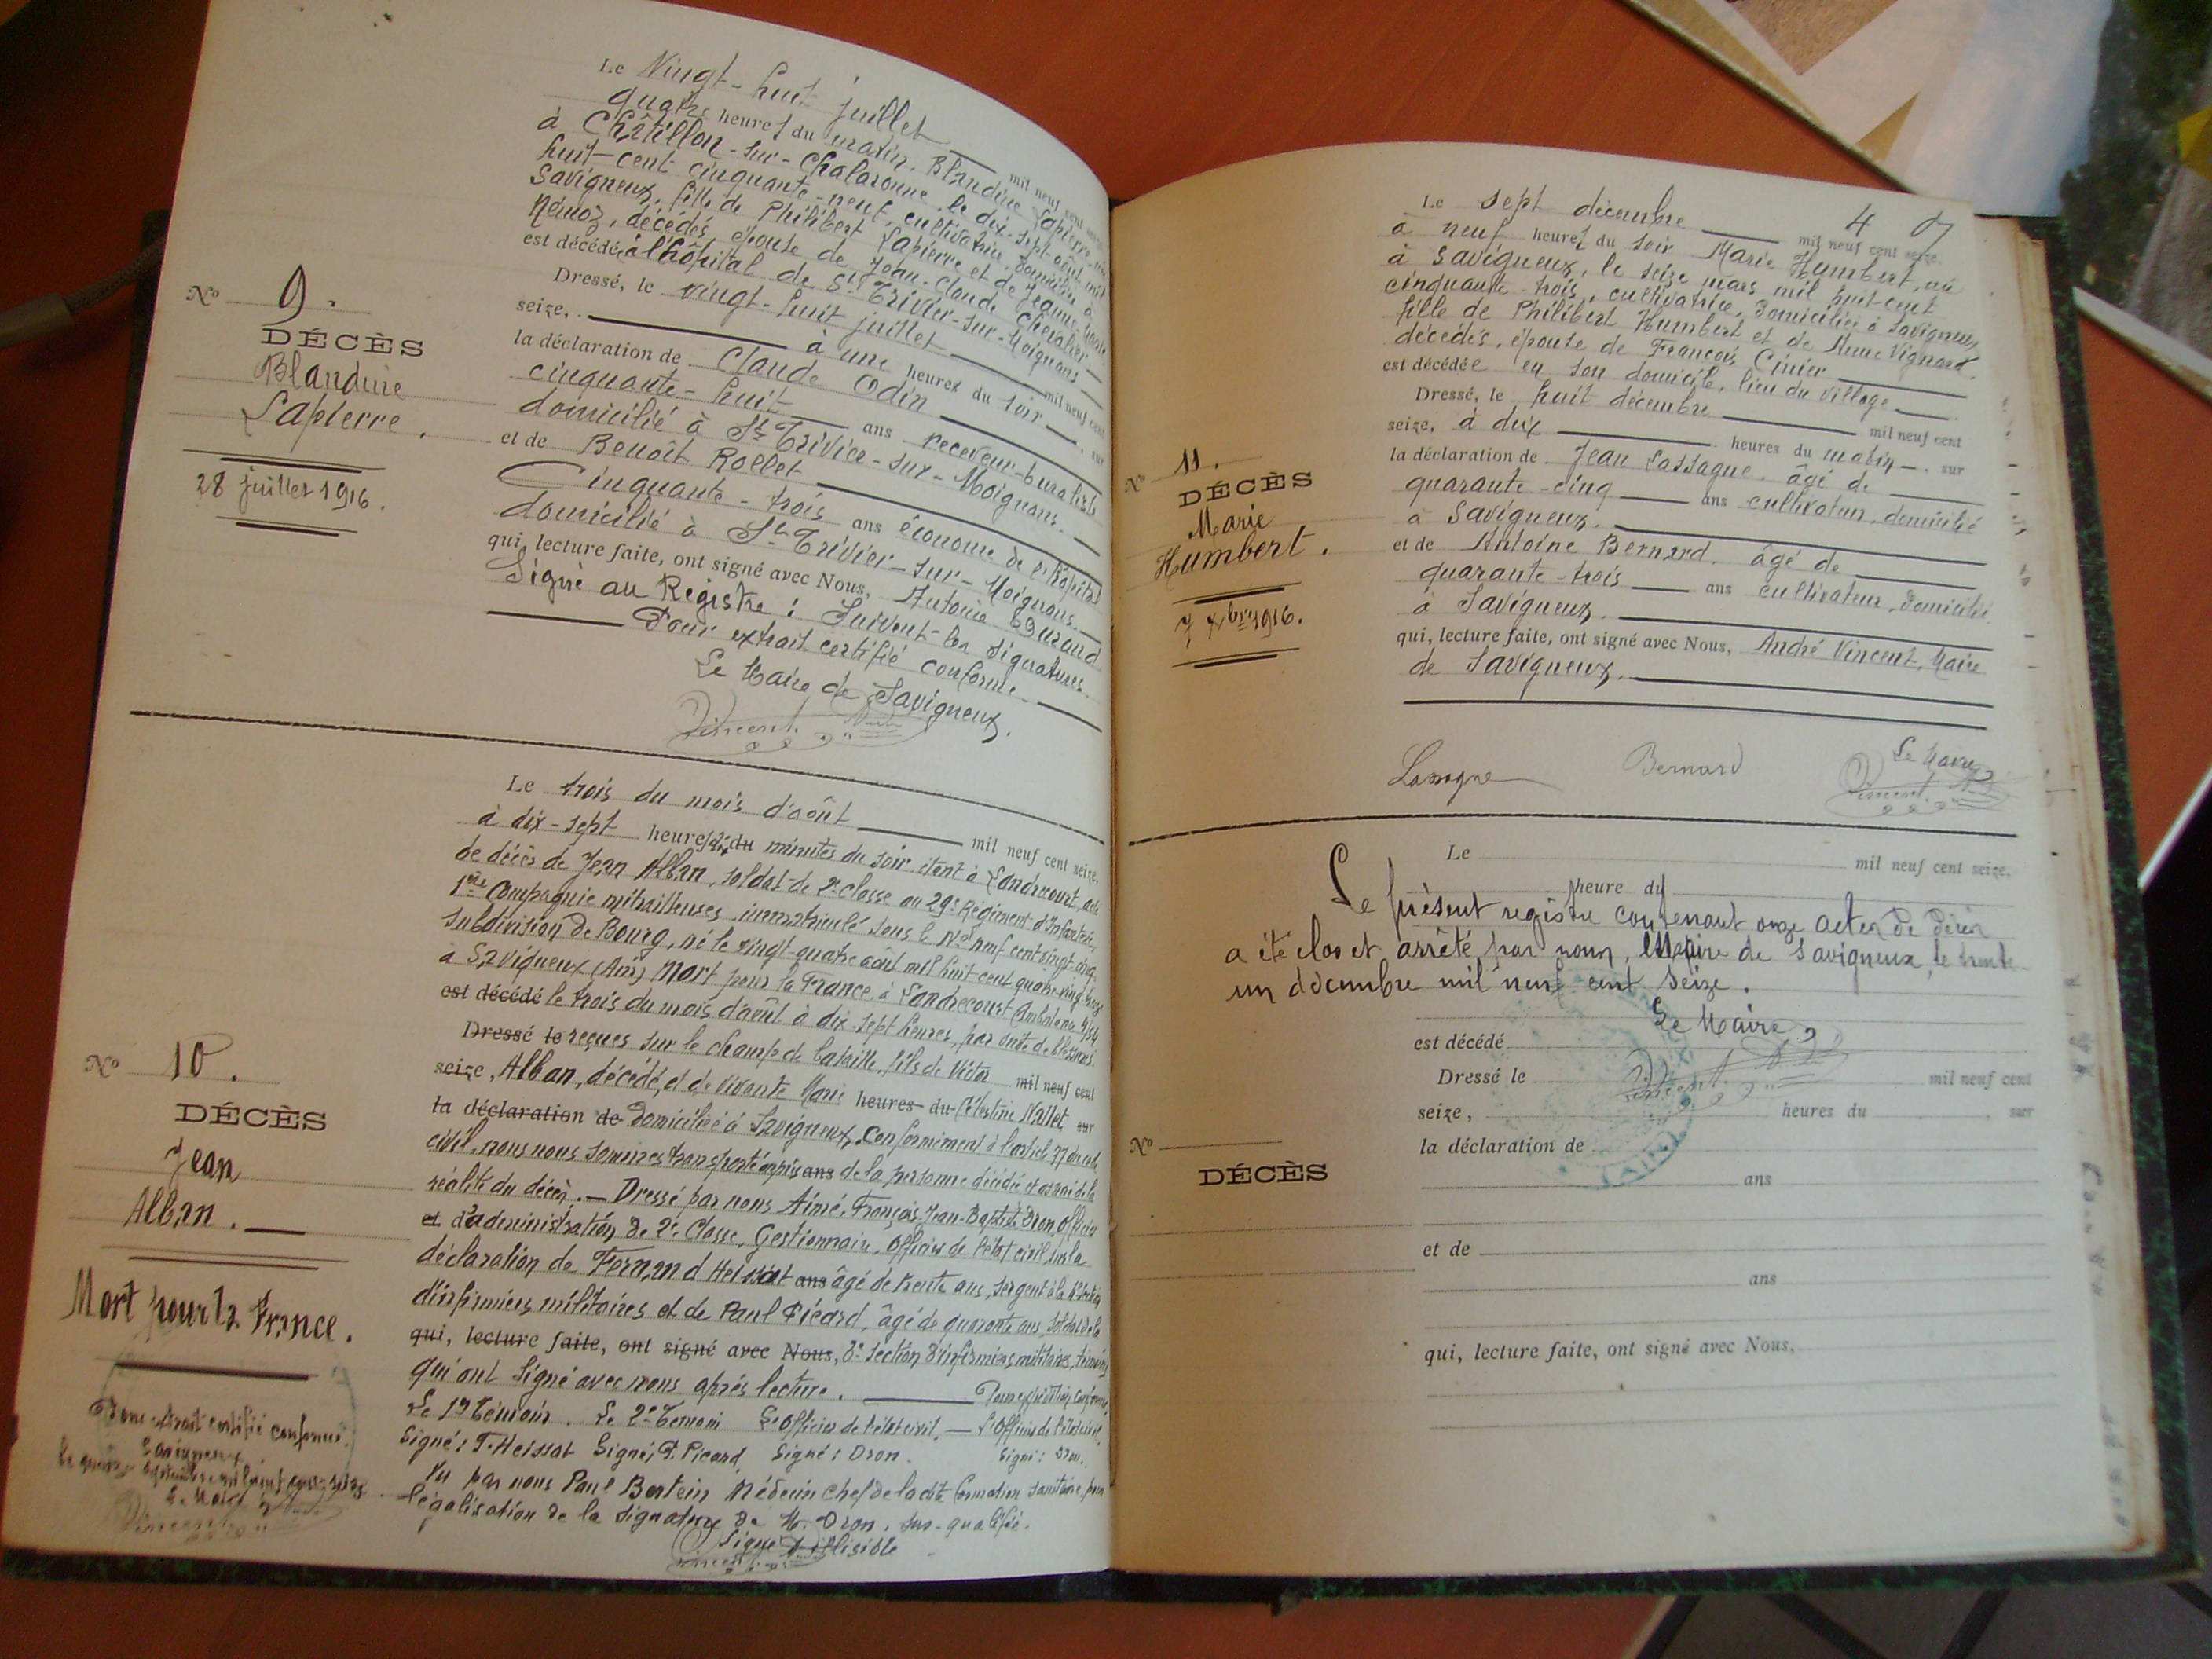 Le Vingt-huit juillet mil neuf cent
quatre heures du matin. Blandine Lapierre, née
à Châtillon-sur-Chalaronne, le dix-sept août mil
huit-cent cinquante-neuf, cultivatrice, domiciliée à
Savigneux, fille de Philibert Lapierre et de Jeanne-Marie
Némoz, décédés, épouse de Jean-Claude Chevalier
est décédée à l'hôpital de St Trivier-sur-Moignans
Dressé, le vingt-huit juillet mil neuf cent
seize, à une heures du soir, sur
la déclaration de Claude Odin
cinquante-huit ans receveur-buraliste
domicilié à St Trivier-sur-Moignans.
et de Benoît Rollet
Cinquante-trois ans économe de l'hôpital
domicilié à St Trivier-sur-Moignans.
qui, lecture faite, ont signé avec Nous, Antoine
Signé au Registre : Suivent les signatures.
Pour extrait certifié conforme
Le Maire de Savigneux.
Vincent
No 9.
DÉCÈS
Blandine
Lapierre.
28 juillet 1916.
Le trois du mois d'août mil neuf cent seize,
à dix-sept heures du minutes du soir étant à Gondrecourt, acte
de décès de Jean Alban, soldat de 2e classe au 29e Régiment d'Infanterie,
1ère Compagnie mitrailleuses immatriculé sous le No neuf cent vingt cinq
subdivision de Bourg, né le vingt-quatre août mil huit cent quatre-vingt
à Savigneux (Ain) Mort pour la France à Gondrecourt
est décédé le trois du mois d'août à dix-sept heures, par suite de blessures
Dressé le reçues sur le champ de bataille, fils de Victor mil neuf cent
seize, Alban, décédé, et de vivante Marie heures du Célestine Nallet sur
la déclaration de domiciliée à Savigneux. Conformément à l'article 77 du code
civil, nous nous sommes transporté auprès ans de la personne décédée et assuré de la
réalité du décès. — Dressé par nous Aimé, François, Jean-Baptiste Dron, officier
et d'administration de 2e Classe, Gestionnaire, officier de l'état civil sur la
déclaration de Fernand Heissat ans âgé de trente ans, sergent à la
d'infirmiers militaires et de Paul Picard, âgé de quarante ans, soldat de la
qui, lecture faite, ont signé avec Nous, 8e section d'infirmiers militaires, témoins
qui ont signé avec nous après lecture. Pour expédition conforme,
Le 1er Témoin. Le 2e Temoin L'officier de l'état civil, — L'officier de l'état civil,
Signé : F. Heissat Signé, P. Picard, Signé : Dron. Signé : Dron.
Vu par nous Paul Bertein Médecin chef de la dite formation sanitaire, pour
légalisation de la signature de M. Dron, sus-qualifié.
Signé illisible
Vincent
No 10.
DÉCÈS
Jean
Alban.
Mort pour la France.
Pour extrait certifié conforme
Savigneux
le septembre mil neuf cent seize
Le Maire
Vincent
4
Le sept décembre mil neuf cent seize,
à neuf heures du soir Marie Humbert, née
à Savigneux, le seize mars mil huit-cent
cinquante-trois, cultivatrice, domiciliée à Savigneux
fille de Philibert Humbert et de Anne Vignard,
décédés, épouse de François Cinier
est décédée en son domicile, lieu du village
Dressé, le huit décembre mil neuf cent
seize, à dix heures du matin, sur
la déclaration de Jean Lassagne, âgé de
quarante-cinq ans cultivateur, domicilié
à Savigneux.
et de Antoine Bernard, âgé de
quarante-trois ans cultivateur, domicilié
à Savigneux.
qui, lecture faite, ont signé avec Nous, André Vincent, Maire
de Savigneux.
Lassagne Bernard Le Maire
Vincent
No 11.
DÉCÈS
Marie
Humbert.
7 Xbre 1916.
Le mil neuf cent seize,
heure du
Le présent registre contenant onze actes de décès
a été clos et arrêté par nous, Maire de Savigneux, le trente
un décembre mil neuf cent seize.
Le Maire,
Vincent
est décédé
Dressé le mil neuf cent
seize, heures du sur
la déclaration de
ans
et de
ans
qui, lecture faite, ont signé avec Nous,
No
DÉCÈS
(AIN)